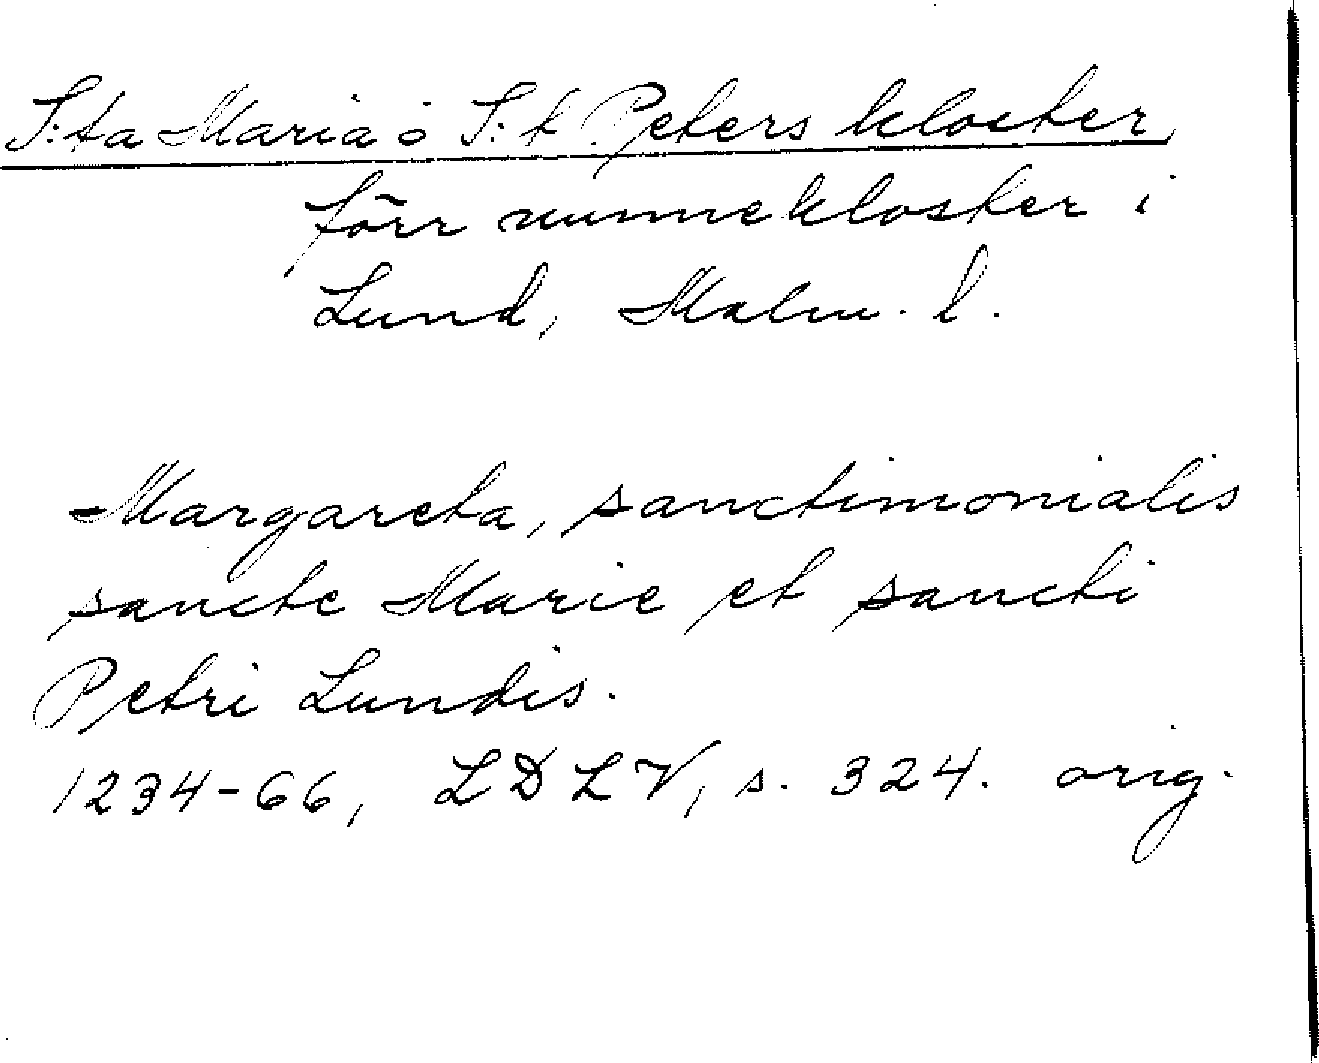 S:ta Maria o S:t Peters kloster,
förr nunnekloster i
Lund, Malm. l.
Margareta, sanctimonialis
sancte Marie et sancti
Petri Lundis.
1234-66, LDLV, s. 324. orig.